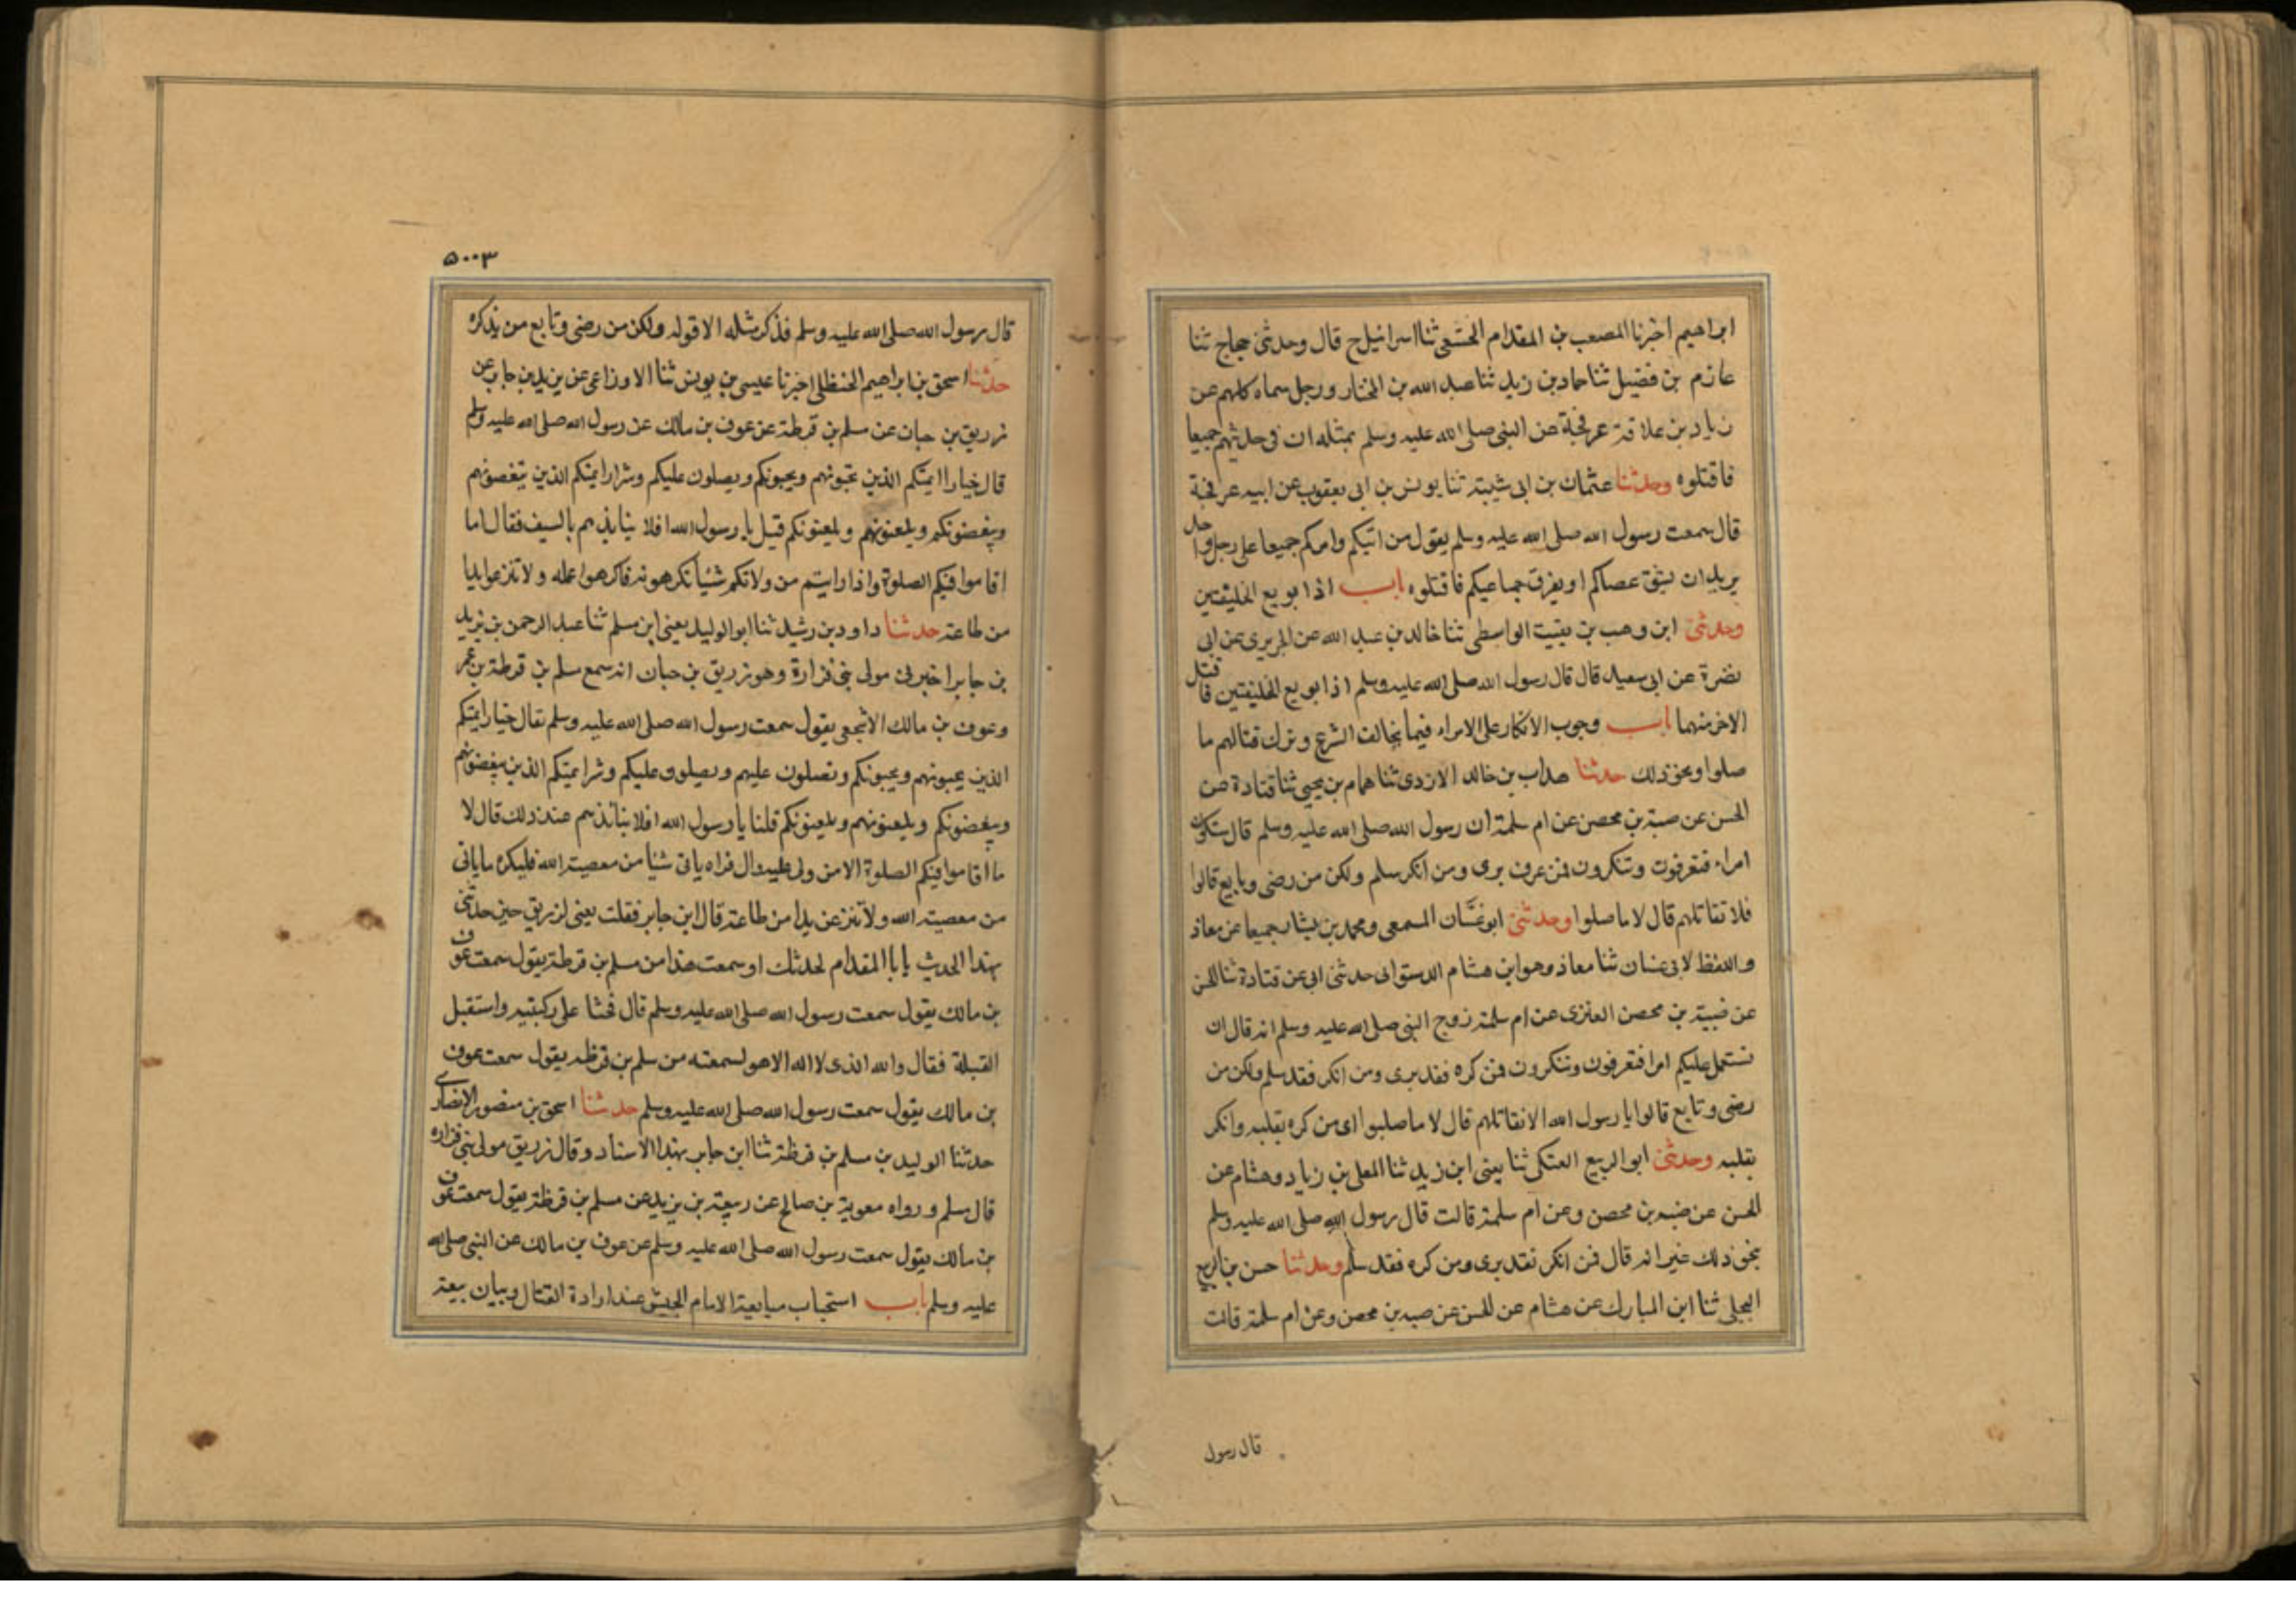 ابراهيم اخبرنا المصعب بن المقدام الخثعمى ثنا اسرائيل ح قال وحدثنى حجاج ثنا
عازم بن فضيل ثنا حماد بن زيد ثنا عبد الله بن المختار ورجل سماه كلهم عن
زياد بن علاقة عرفجة عن النبى صلى الله عليه وسلم بمثله ان فى حديثهم جميعا
فاقتلوه وحدثنا عثمان بن ابى شيبة ثنا يونس بن ابى يعقوب عن ابيه عرفجة
قال سمعت رسول الله صلى الله عليه وسلم يقول من اتيكم وامركم جميعا على رجل واحد
يريد ان يشق عصاكم او يفرق جماعيكم فاقتلوه باب اذا بويع الخليفتين
وحدثنى ابن وهب بن بقيت الواسطى ثنا خالد بن عبد الله عن الجريرى عن ابى
نضرة عن ابى سعيد قال قال رسول الله صلى الله عليه وسلم اذا بويع الخليفتين فاقتل
الاخر منهما باب وجوب الانكار على الامراء فيما يخالف الشرع وترك قتالهم ما
صلوا ونحو ذلك حدثنا هداب بن خالد الازدى ثنا همام بن يحيى ثنا قتادة عن
الحسن عن ضبة بن محصن عن ام سلمة ان رسول الله صلى الله عليه وسلم قال ستكون
امراء فتعرفون وتنكرون فمن عرف برى ومن انكر سلم ولكن من رضى وبايع قالوا
فلا تقاتلهم قال لا ما صلوا وحدثنى ابو غسّان المسمعى ومحمد بن بشار جميعا عن معاذ
واللفظ لابى غسان ثنا معاذ وهو ابن هشام الدستوائى حدثنى ابى عن قتادة ثنا الحسن
عن ضبية بن محصن العنزى عن ام سلمة زوج النبى صلى الله عليه وسلم انه قال ان
نستعمل عليكم امرا فتعرفون وتنكرون فمن كره فقد برى ومن انكر فقد سلم ولكن من
رضى وتابع قالوا يا رسول الله الا نقاتلهم قال لا ما صلبوا اى من كره بقلبه وانكر
بقلبه وحدثنى ابو الربيع العتكى ثنا يعنى ابن زيد ثنا المعلى بن زياد وهشام عن
الحسن عن ضبه بن محصن وعن ام سلمة قالت قال رسول الله صلى الله عليه وسلم
بنحو ذلك غير انه قال فمن انكر نقد برى ومن كره فقد سلم وحدثنا حسن بن الربيع
البجلى ثنا ابن المبارك عن هشام عن الحسن عن ضبه بن محصن وعن ام سلمة قالت
قال رسول
٥٠٠٣
قال رسول الله صلى الله عليه وسلم فذكر مثله الا قوله ولكن من رضى وتابع من يذكره
حدثنا اسحق بن ابراهيم الحنظلى اخبرنا عيسى بن يونس ثنا الاوزاعى عن يزيد بن جابر عن
زريق بن حبان عن مسلم بن قرطة عن عوف بن مالك عن رسول الله صلى الله عليه وسلم
قال خيار ايمتكم الذين تحبونهم ويحبونكم ويصلون عليكم وشرار ايمتكم الذين تبغضونهم
ويغضونكم ويلعنونهم ويلعنونكم قيل يا رسول الله افلا ينابذهم بالسيف فقال اما
اقاموا فيكم الصلوة واذا رايتم من ولاتكم شيًا تكرهونه فاكرهوا عمله ولا تنزعوا يدا
من طاعته حدثنا داود بن رشيد ثنا ابو الوليد يعنى ابن مسلم ثنا عبد الرحمن بن يزيد
بن جابر اخبرنى مولى بنى فزارة وهو زريق بن حبان انه سمع مسلم بن قرطة بن عمر
وعوف بن مالك الاشجعى يقول سمعت رسول الله صلى الله عليه وسلم نقال خيار ايمتكم
الذين يحبونهم ويحبونكم وتصلون عليهم ويصلون عليكم وشرا يمتكم الذين يبغضونهم
ويبغضونكم ويلعنونهم ويلعنونكم قلنا يا رسول الله افلا نبانذهم عند ذلك قال لا
ما اقاموا فيكم الصلوة الا من ولى عليه وال فراه ياتى شيا من معصية الله فليكره ما ياتى
من معصية الله ولا تنزعن يدا من طاعة قال ابن جابر فقلت يعنى لزريق حين حدثنى
بهذا الحديث يا با المقدام لحدثك او سمعت هذا من مسلم بن قرطة يقول سمعت عوف
بن مالك يقول سمعت رسول الله صلى الله عليه وسلم قال فحثا على ركبتيه واستقبل
القبلة فقال والله الذى لا اله الا هو لسمعته من مسلم بن قرظه يقول سمعت عوف
بن مالك يقول سمعت رسول الله صلى الله عليه وسلم حدثنا اسحق بن منصور الانصارى
حدثنا الوليد بن مسلم بن قرظة ثنا ابن جابر بهذا الاسناد وقال زريق مولى بنى فزاره
قال مسلم ورواه معوية بن صالح عن ربيعة بن يزيد عن مسلم بن قرظة يقول سمعت عوف
بن مالك يقول سمعت رسول الله صلى الله عليه وسلم عن عوف بن مالك عن النبى صلى الله
عليه وسلم باب استحباب مبايعة الامام الجيش عند ارادة القتال وبيان بيعة